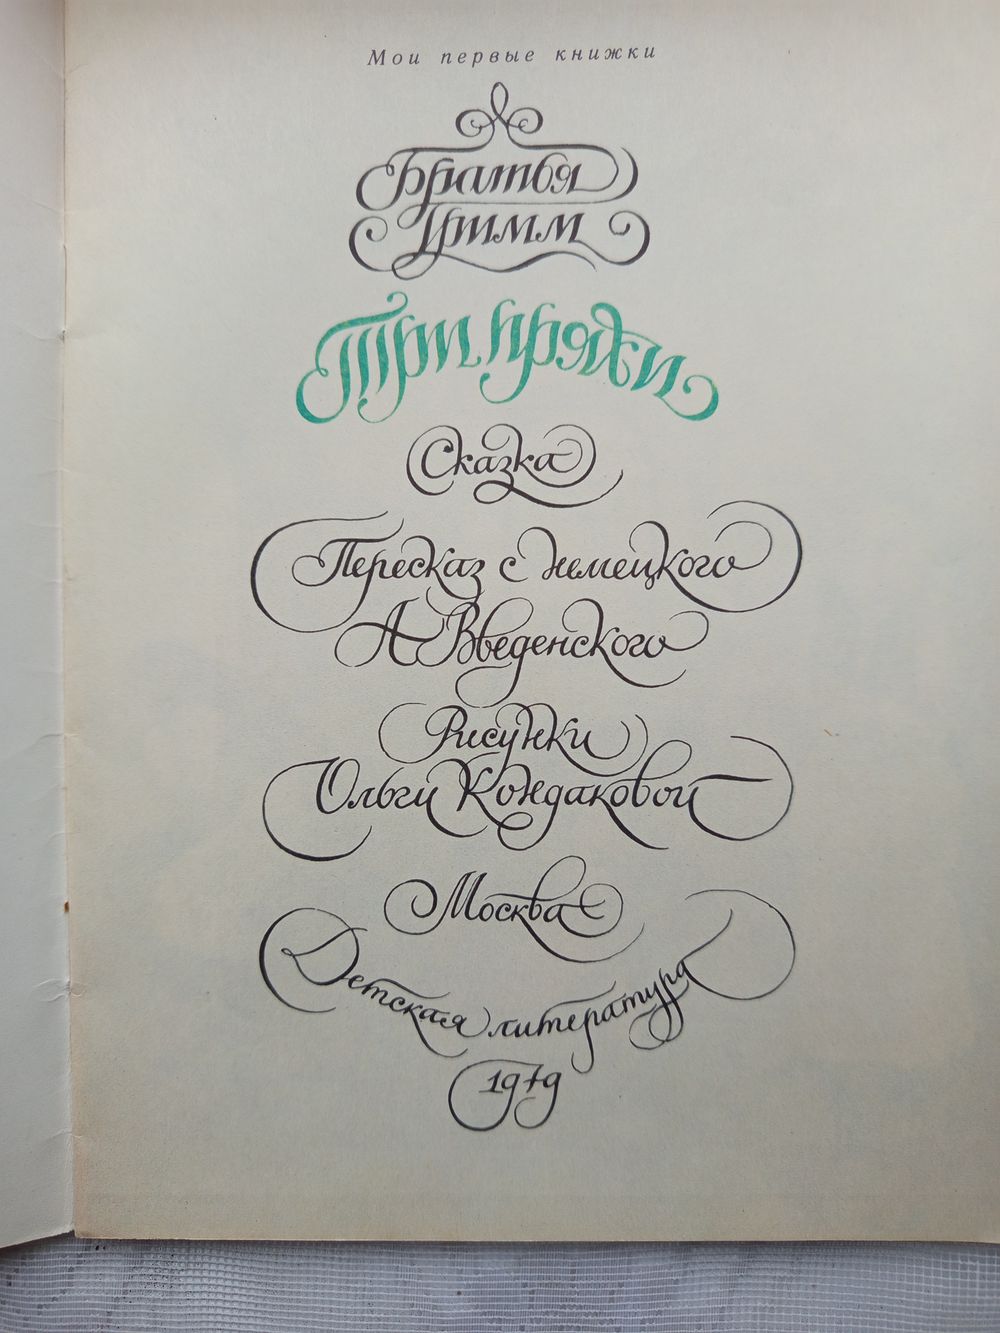 Мои первые книжки
Братья
Гримм
Три пряхи
Сказка
Пересказ с немецкого
А Введенского
Рисунки
Ольги Кондаковой
Москва
Детская литература
1979